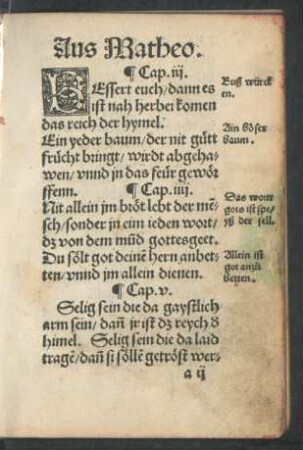 Aus Matheo.
¶ Cap. iij.
BEssert euch/dann es
ist nah herbei komen
das reich der hymel.
Ein yeder baum/der nit gůtt
frücht bringt/wirdt abgeha-
wen/vnnd in das feür gewör
ffenn. ¶ Cap. iiij.
Nit allein jm bröt lebt der mē-
sch/sonder in eim ieden wort/
dz von dem mūd gottes geet.
Du sölt got deinē hern anbet-
ten/vnnd jm allein dienen.
¶ Cap. v.
Selig sein die da gaystlich
arm sein/dañ ir ist dz reych ð
himel. Selig sein die da laid
tragē/dañ si söllē getröst wer-
a ij
Buß würck
en.
Ain böser
baum.
Das wort
gots ist spe/
yß der sell.
Allein ist
got anzů
betten.